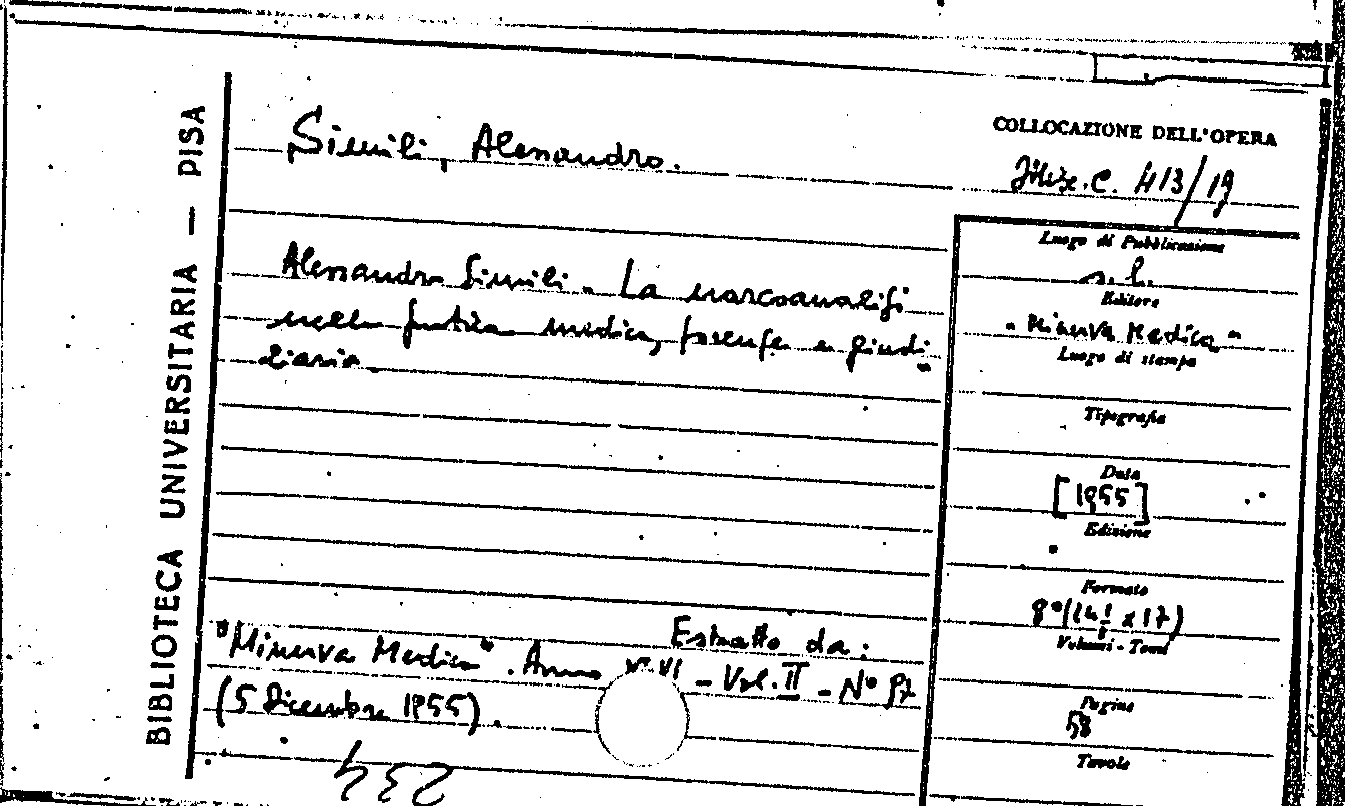 BIBLIOTECA UNIVERSITARIA — PISA
Simili, Alessandro.
Alessandro Simili - La narcoanalisi
nella pratica medica, forense e giudi-
ziaria.
Estratto da:
"Minerva Medica". Anno XLVI - Vol. II - N° 97
(5 Dicembre 1955).
234
COLLOCAZIONE DELL'OPERA
C. 413/19
Luogo di Pubblicazione
s. l.
Editore
"Minerva Medica"
Luogo di stampa
Tipografia
Data
[1955]
Edizione
Formato
8°
Volumi - Tomi
Pagine
58
Tavole